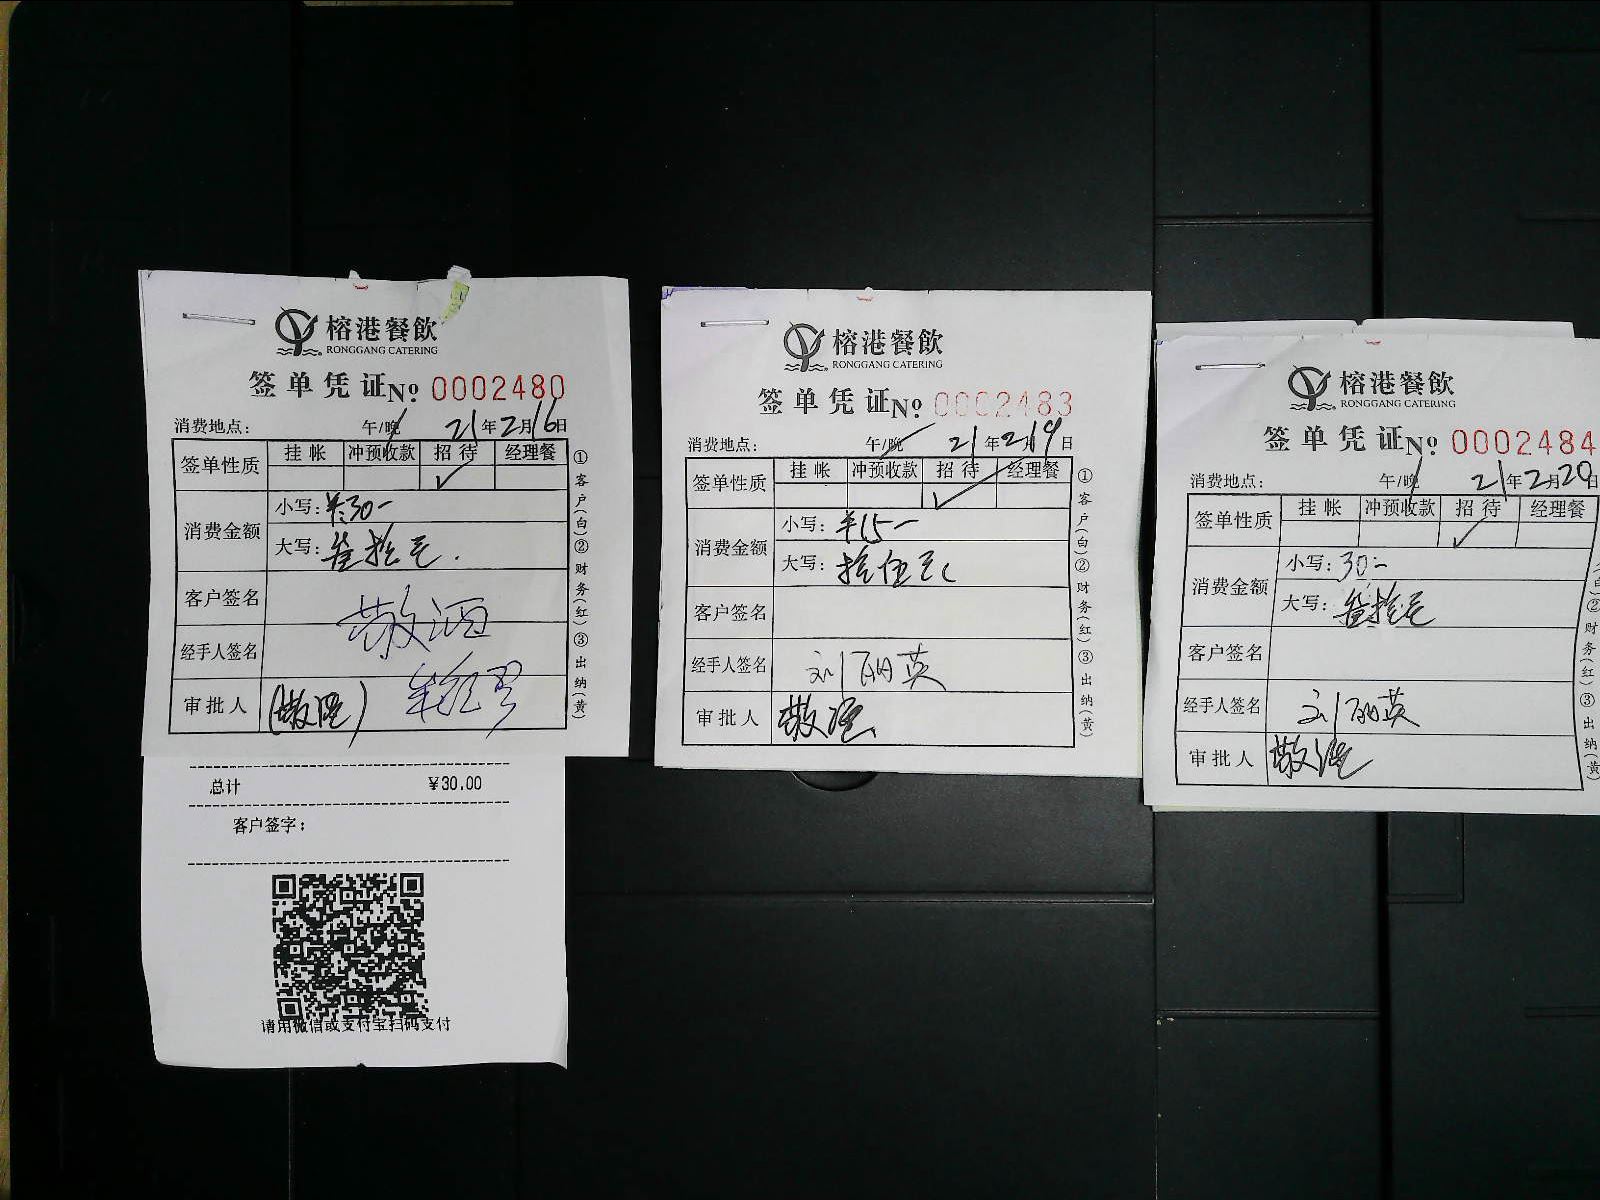 榕港餐飲
RONGGANG CATERING
签单凭证 № 0002480
消费地点： 午/晚 21年2月16日
签单性质 挂帐 冲预收款 招待 经理餐
✓
消费金额
小写：¥:30-
大写：叁拾元.
客户签名
经手人签名
审批人
①客户(白)②财务(红)③出纳(黄)
总计 ¥30.00
客户签字：
请用微信或支付宝扫码支付
榕港餐飲
RONGGANG CATERING
签单凭证 № 0002483
消费地点： 午/晚 21年2月19日
签单性质 挂帐 冲预收款 招待 经理餐
✓
消费金额
小写：¥15-
大写：拾伍元
客户签名
经手人签名 刘丽英
审批人
①客户(白)②财务(红)③出纳(黄)
榕港餐飲
RONGGANG CATERING
签单凭证 № 0002484
消费地点： 午/晚 21年2月20日
签单性质 挂帐 冲预收款 招待 经理餐
✓
消费金额
小写：30-
大写：叁拾元
客户签名
经手人签名 刘丽英
审批人
②财务(红)③出纳(黄)